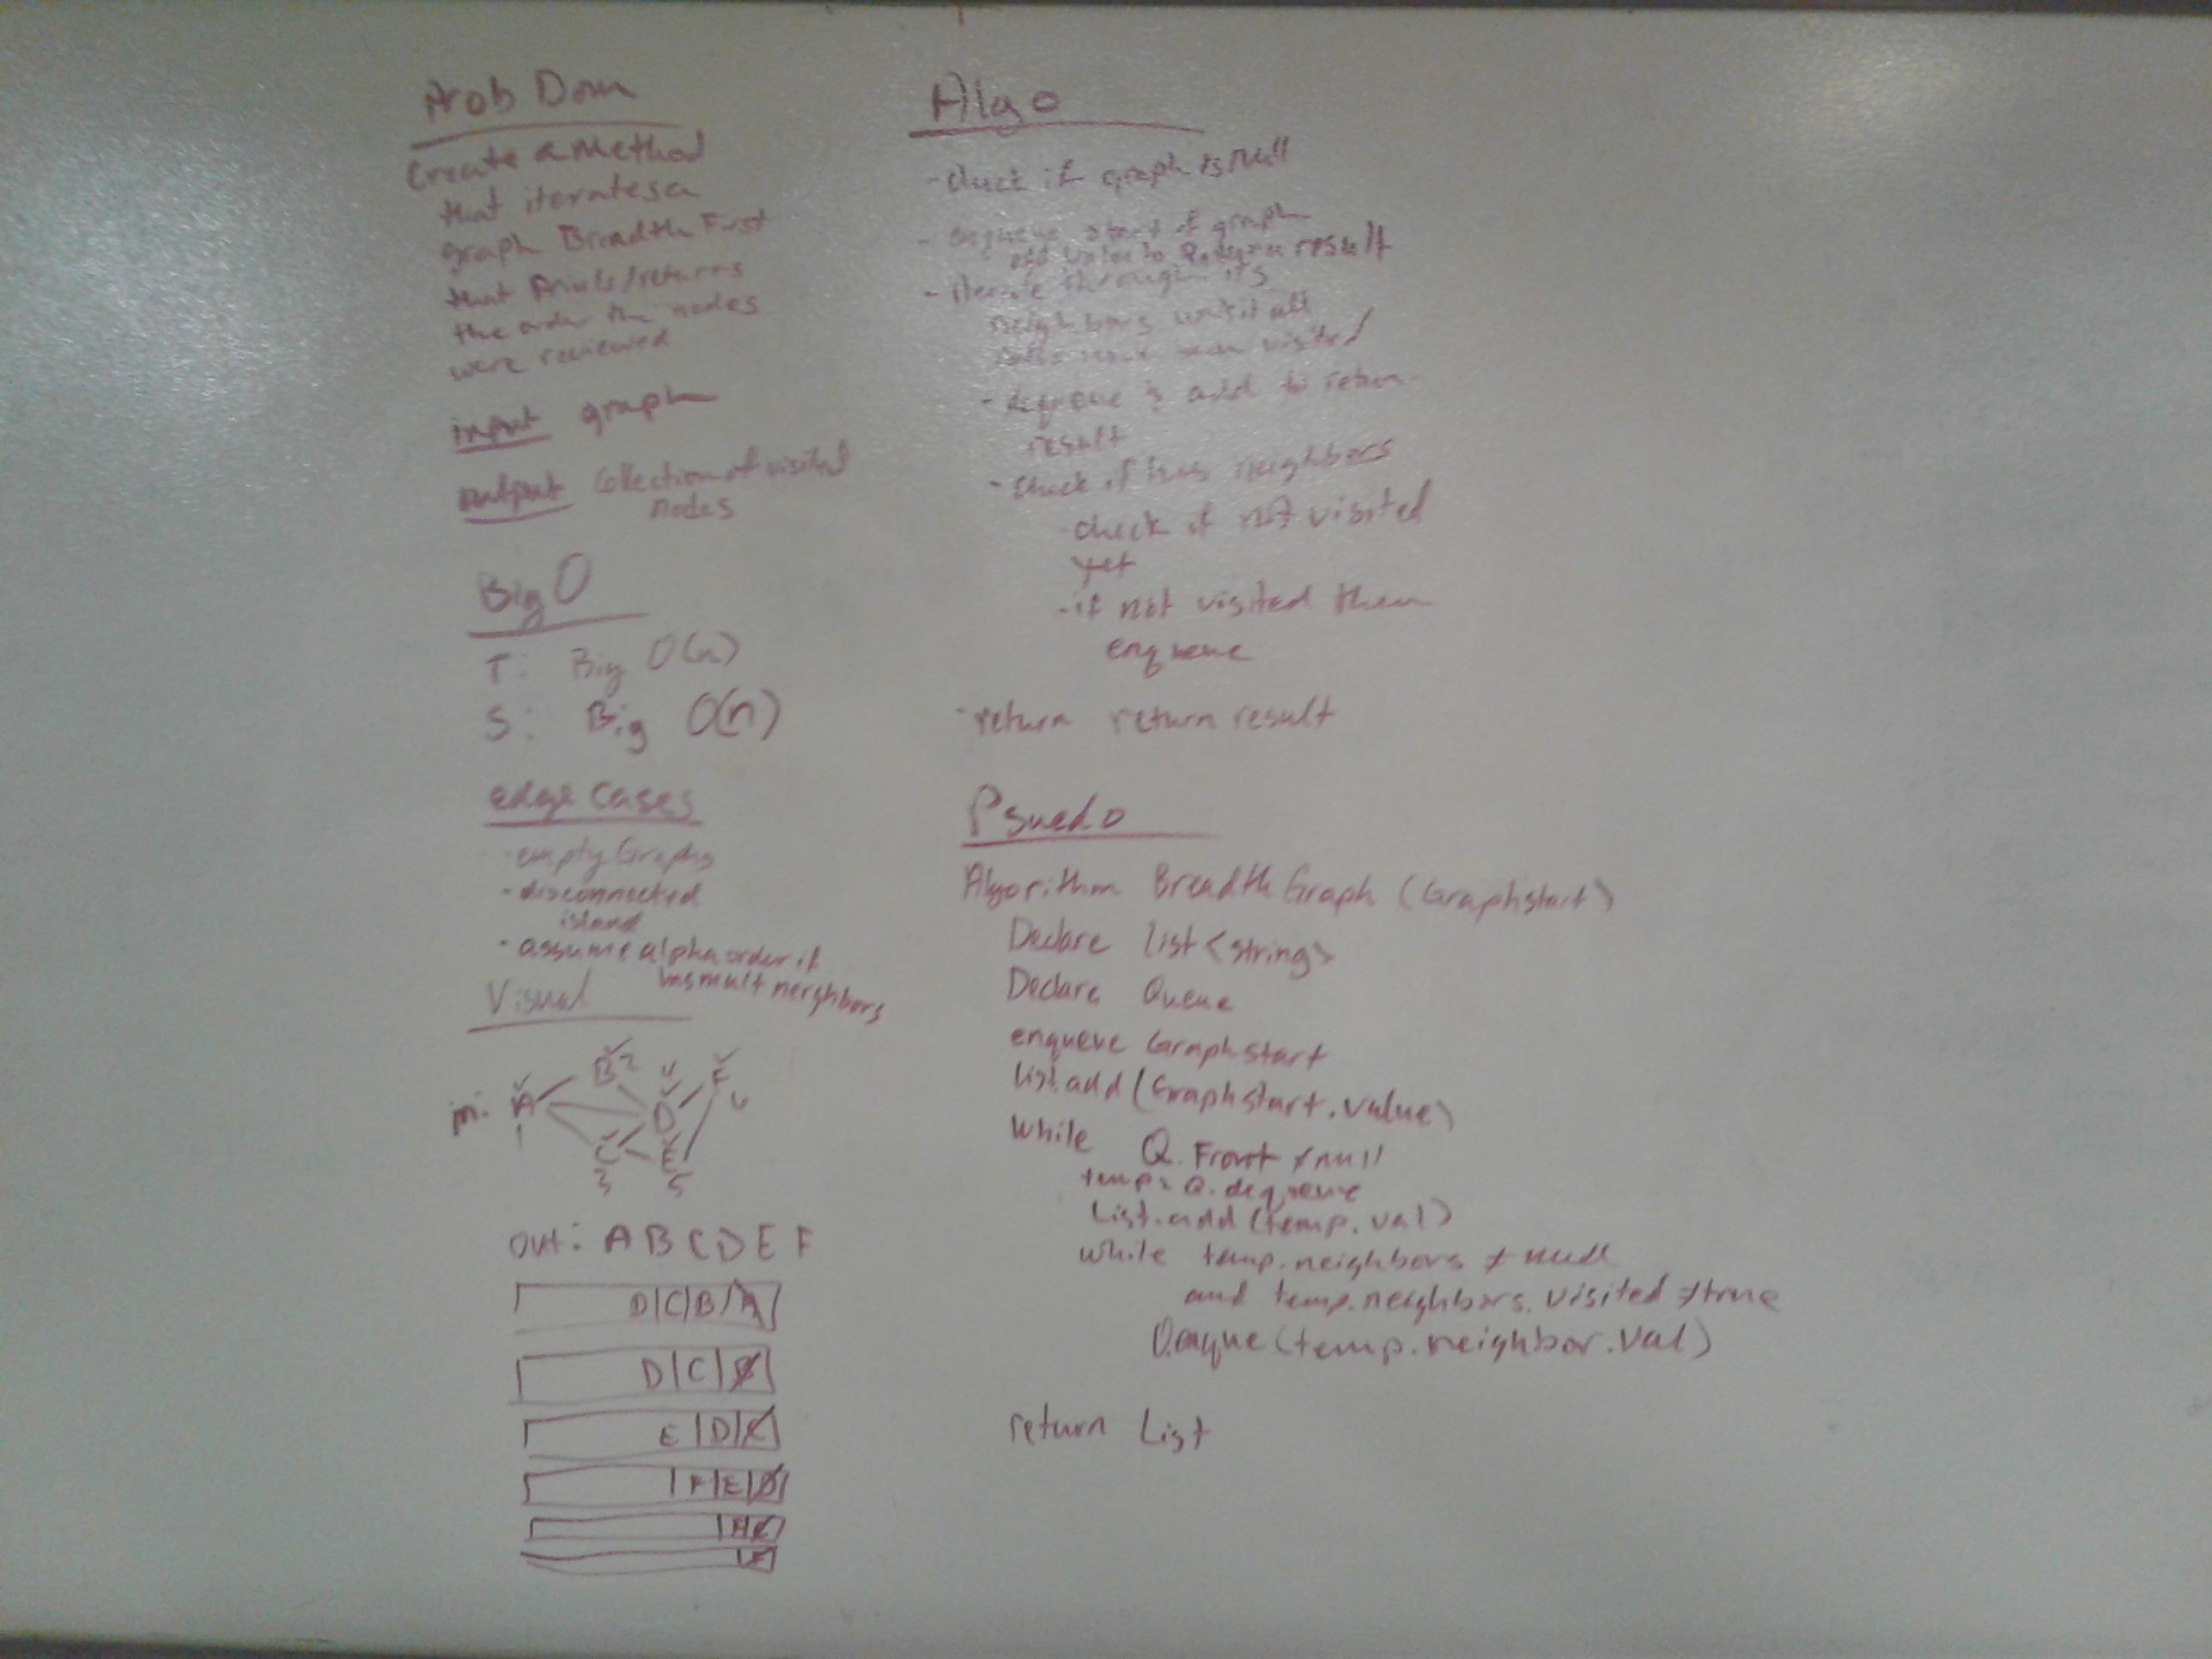 Prob Dom
Create a method
that iterates a
graph Breadth First
that Prints/returns
the order the nodes
were reviewed
input graph
output Collection of visited
nodes
Big O
T: Big O(n)
S: Big O(n)
edge cases
- empty Graphs
- disconnected
island
- assume alpha order if
has mult neighbors
Visual
in: A B C D E F
1 2 3 4 5 6
out: A B C D E F
D|C|B|A
D|C|B
E|D|C
|F|E|D
|F|E
|F
Algo
- check if graph is null
- enqueue start of graph
add value to result
- iterate through its
neighbors until all
have been visited
- dequeue & add to return
result
- check if has neighbors
- check if not visited
yet
- if not visited then
enqueue
- return return result
Psuedo
Algorithm Breadth Graph (Graphstart)
Declare list<string>
Declare Queue
enqueue Graphstart
List.add(Graphstart.value)
while Q.Front ≠ null
temp = Q.dequeue
List.add(temp.val)
while temp.neighbors ≠ null
and temp.neighbors.visited ≠ true
Q.enque(temp.neighbor.val)
return List